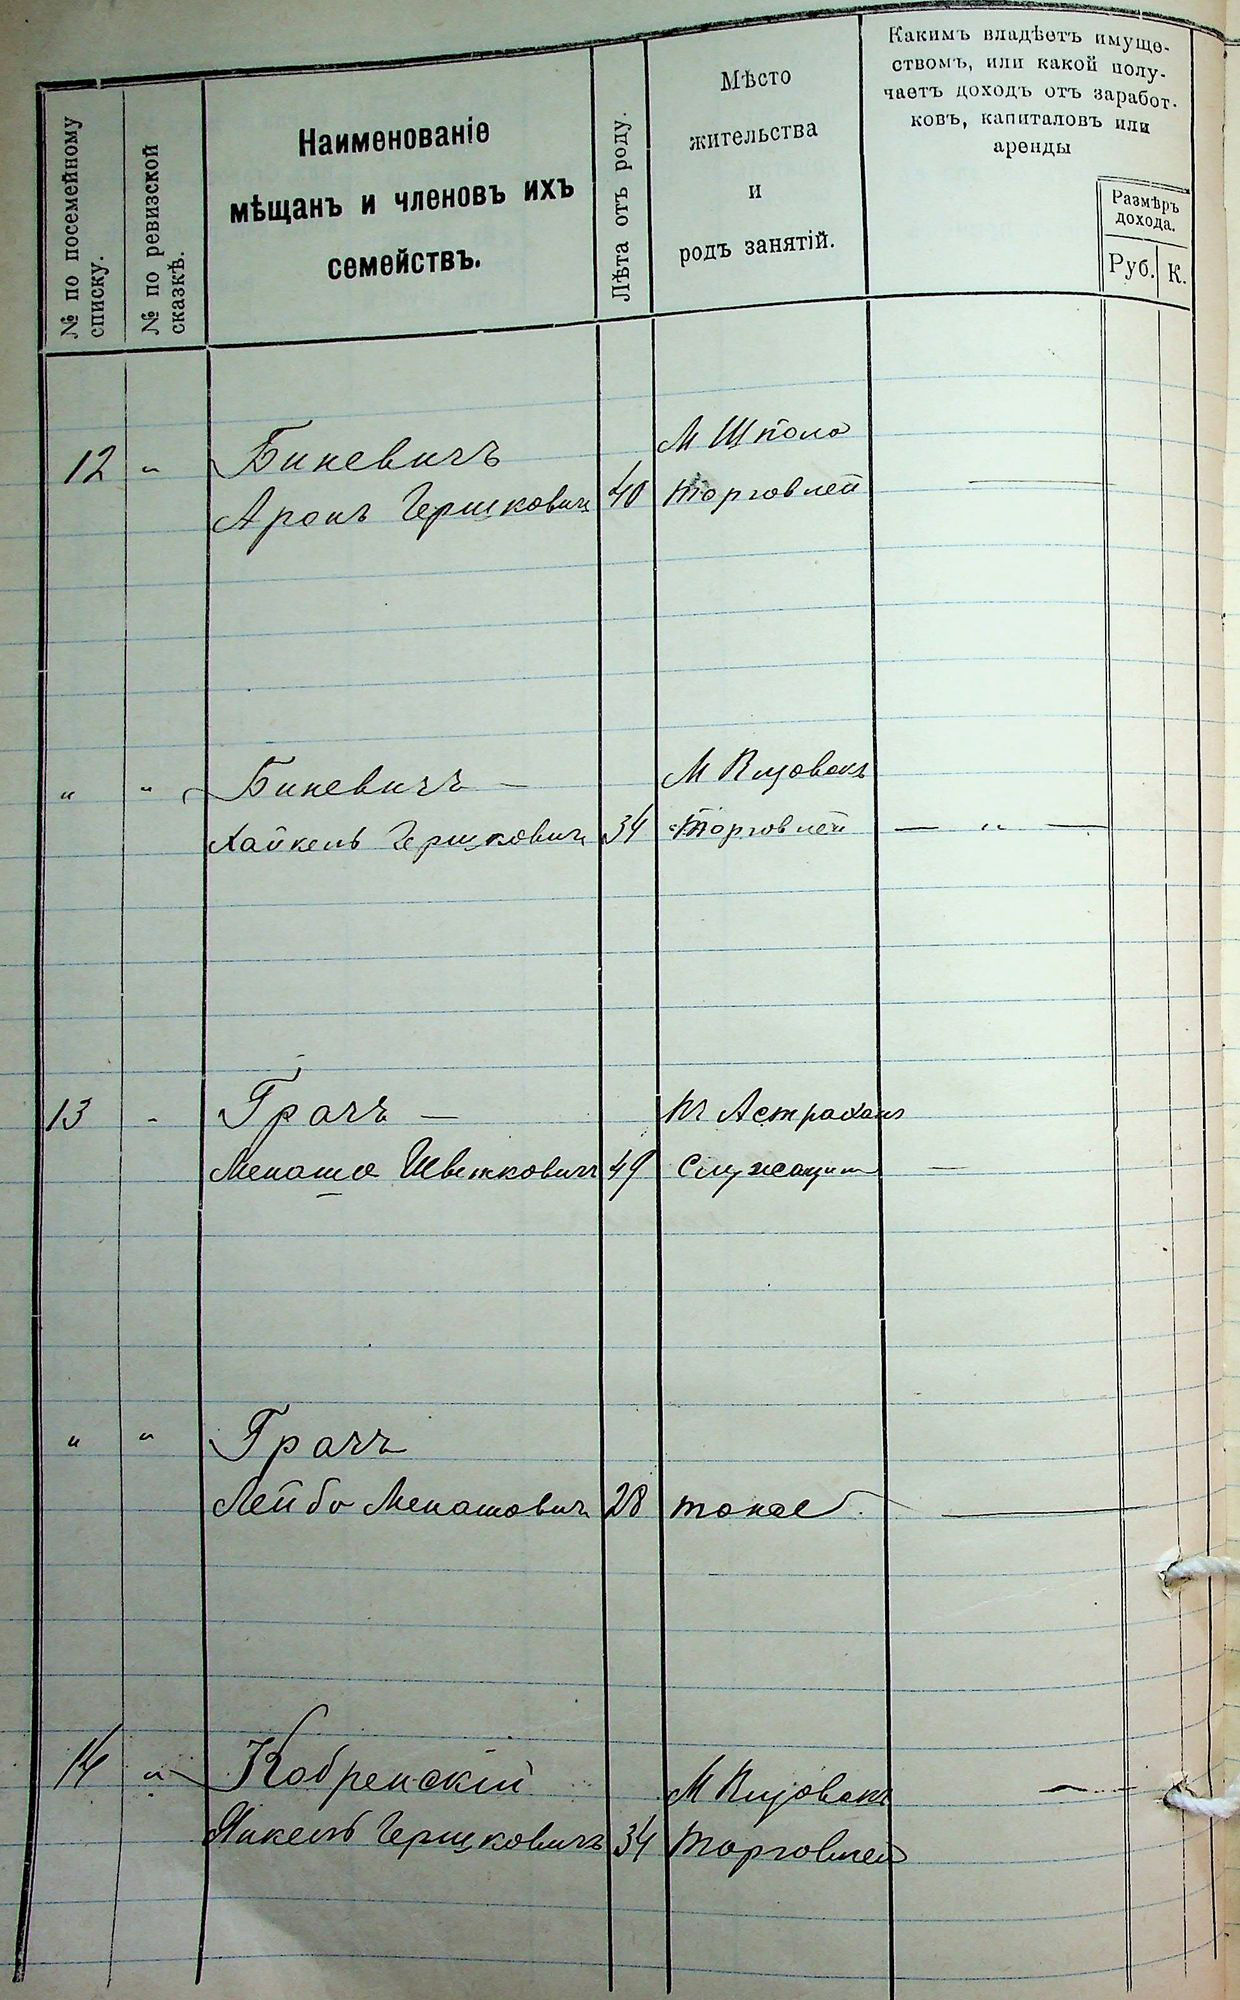 № по посемейному
списку.
№ по ревизской
сказкѣ.
Наименованіе
мѣщанъ и членовъ ихъ
семействъ.
Лѣта отъ роду.
Мѣсто
жительства
и
родъ занятій.
Какимъ владѣетъ имуще-
ствомъ, или какой полу-
чаетъ доходъ отъ заработ-
ковъ, капиталовъ или
аренды
Размѣръ
дохода.
Руб. К.
12 " Биневичъ М Шпола
Аронъ Гершковичъ 40 торговлей
" " Биневичъ — М
Хайкель Гершковичъ 34 торговлей — " —
13 " Грачъ — Астрахань
Менаше 49 Служащий —
" " Грачъ
Лейба Менашовичъ 28 тоже —
14 " Кобренскій М —
Янкель Гершковичъ 34 Торговлей